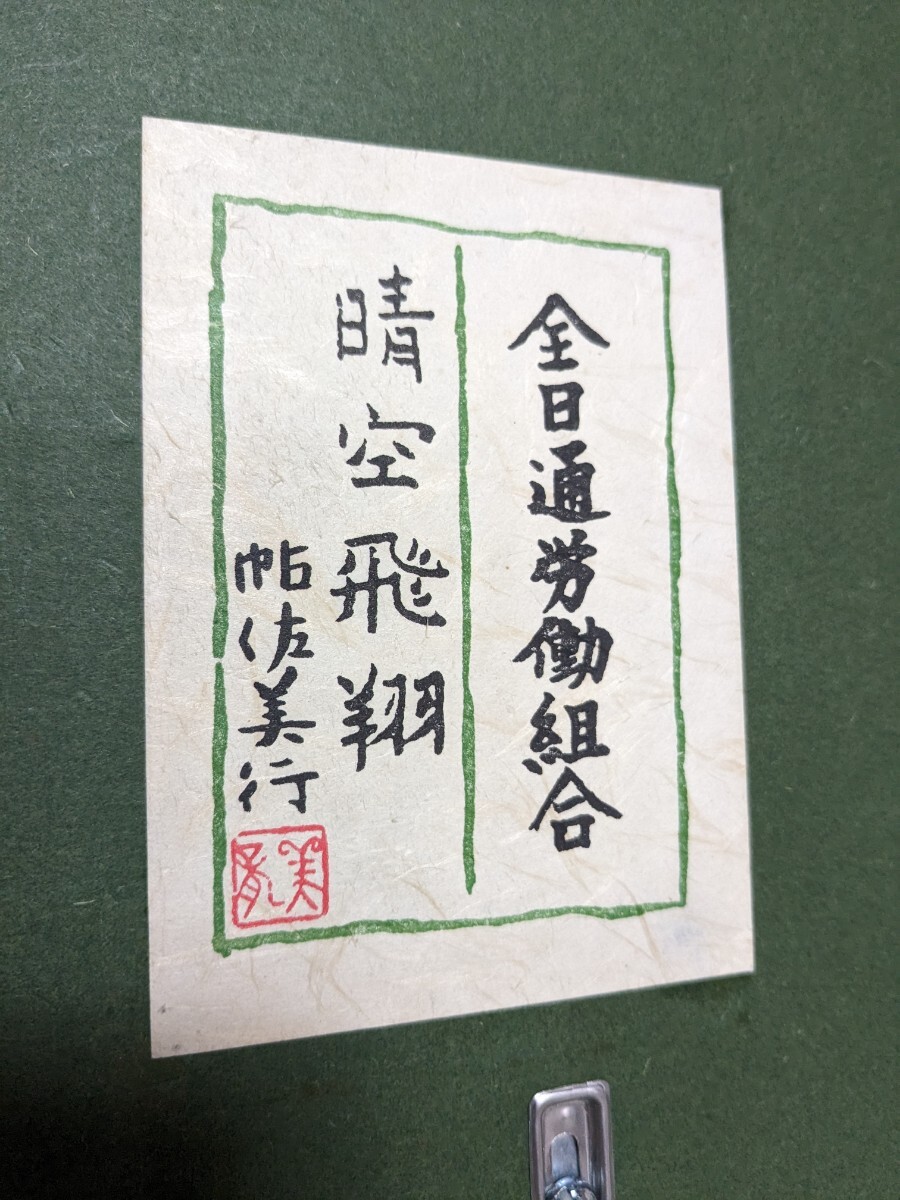 全日通労働組合
晴空飛翔
帖佐美行